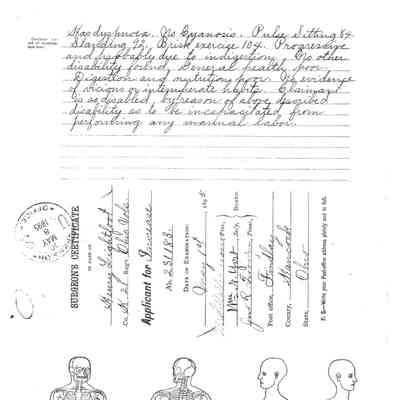 Has dyspnoea. No Cyanosis. Pulse Sitting 84.
Standing 92. Brisk exercise 104. Progressive
and probably due to indigestion. No other
disability found. General health poor.
Digestion and nutrition poor. No evidence
of vicious or intemperate habits. Claimant
is so disabled, by reason of above described
disability as to be incapacitated from
performing any manual labor.
SURGEON'S CERTIFICATE
IN CASE OF
Henry Lightfoot
Co. K, 21 Reg't Ohio Vols.
Applicant for Increase
No. 231183.
DATE OF EXAMINATION:
May 1st, 1895
Pres.
Sec'y,
Treas.
BOARD.
Post office, Findlay
County, Hancock
State, Ohio
P. S.—Write your Post-office address plainly and in full.
MAY
8
1895